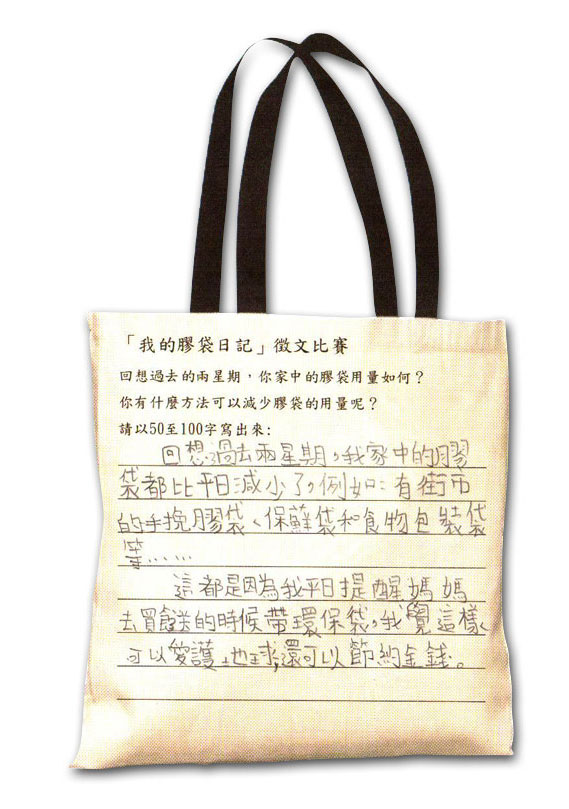 「我的膠袋日記」徵文比賽
回想過去的兩星期，你家中的膠袋用量如何？
你有什麼方法可以減少膠袋的用量呢？
請以50至100字寫出來:
回想過去兩星期，我家中的膠
袋都比平日減少了，例如：有街市
的手挽膠袋、保鮮袋和食物包裝袋
等……
這都是因為我平日提醒媽媽
去買餸的時候帶環保袋，我覺這樣
可以愛護地球，還可以節約金錢。